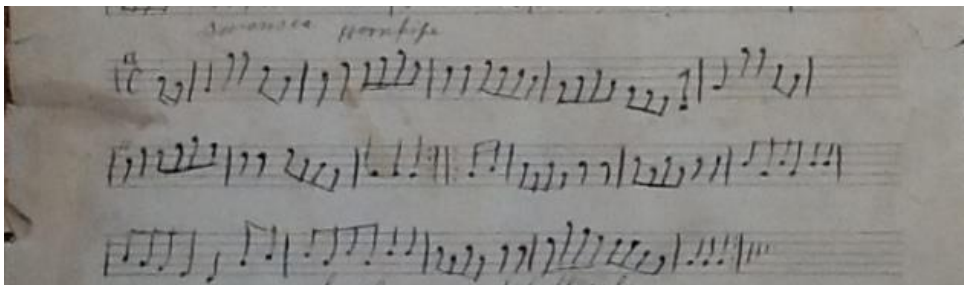 Swansea Hornpipe